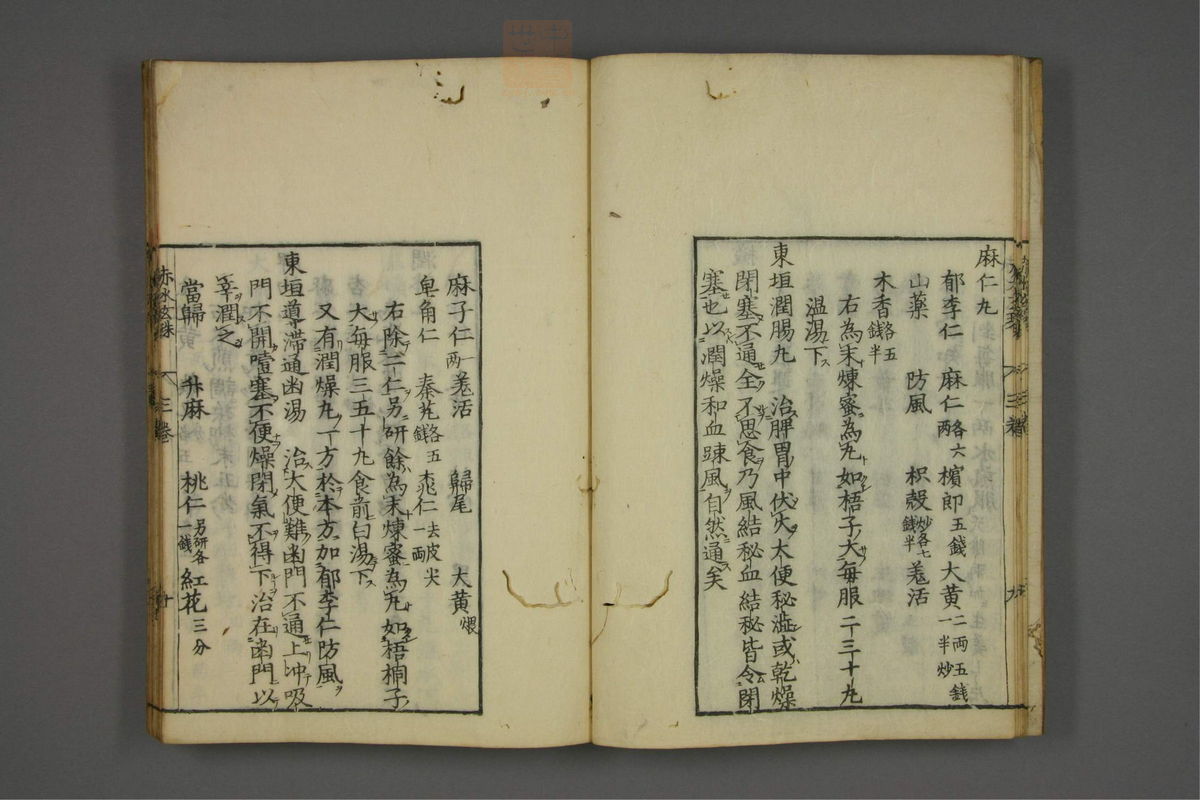 麻仁丸
郁李仁 麻仁各六兩 檳郎五錢 大黄二两五錢一半炒
山藥 防風 枳殻炒各七錢半 羗活
木香各五錢半
右為末煉蜜為丸如梧子大每服二三十九
温湯下
東垣潤腸丸 治脾胃中伏火大便秘澁或乾燥
閉塞不通全不思食乃風結秘血結秘皆令閉
塞也以潤燥和血踈風自然通矣
麻子仁一兩 羗活 歸尾 大黄煨
皁角仁 秦艽各五錢 桃仁一両去皮尖
右除二仁另研餘為末煉蜜為丸如梧桐子
大每服三五十九食前白湯下
又有潤燥丸一方於本方加郁李仁防風
東垣導滯通幽湯 治大便難幽門不通上冲吸
門不開噎塞不便燥閉氣不得下治在幽門以
辛潤之
當歸 升麻 桃仁另研各一錢 紅花三分
赤水玄珠 三卷 十
三卷 九